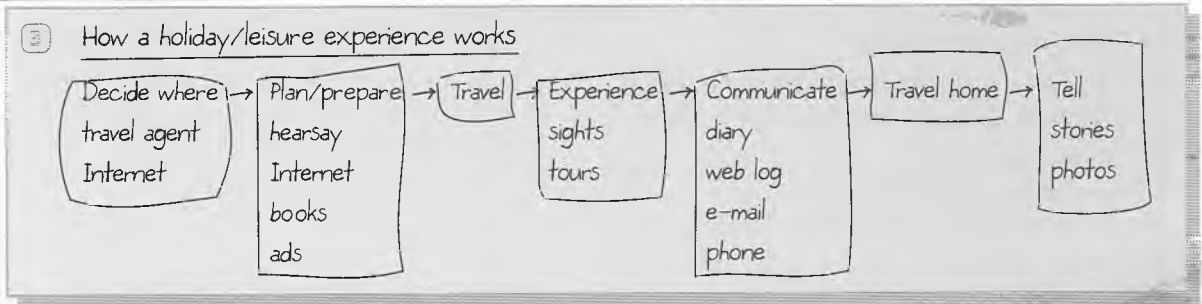 How a holiday/leisure experience works
Decide where
travel agent
Internet
Plan/prepare
hearsay
Internet
books
ads
Travel
Experience
sights
tours
Communicate
diary
web log
e-mail
phone
Travel home
Tell
stories
photos